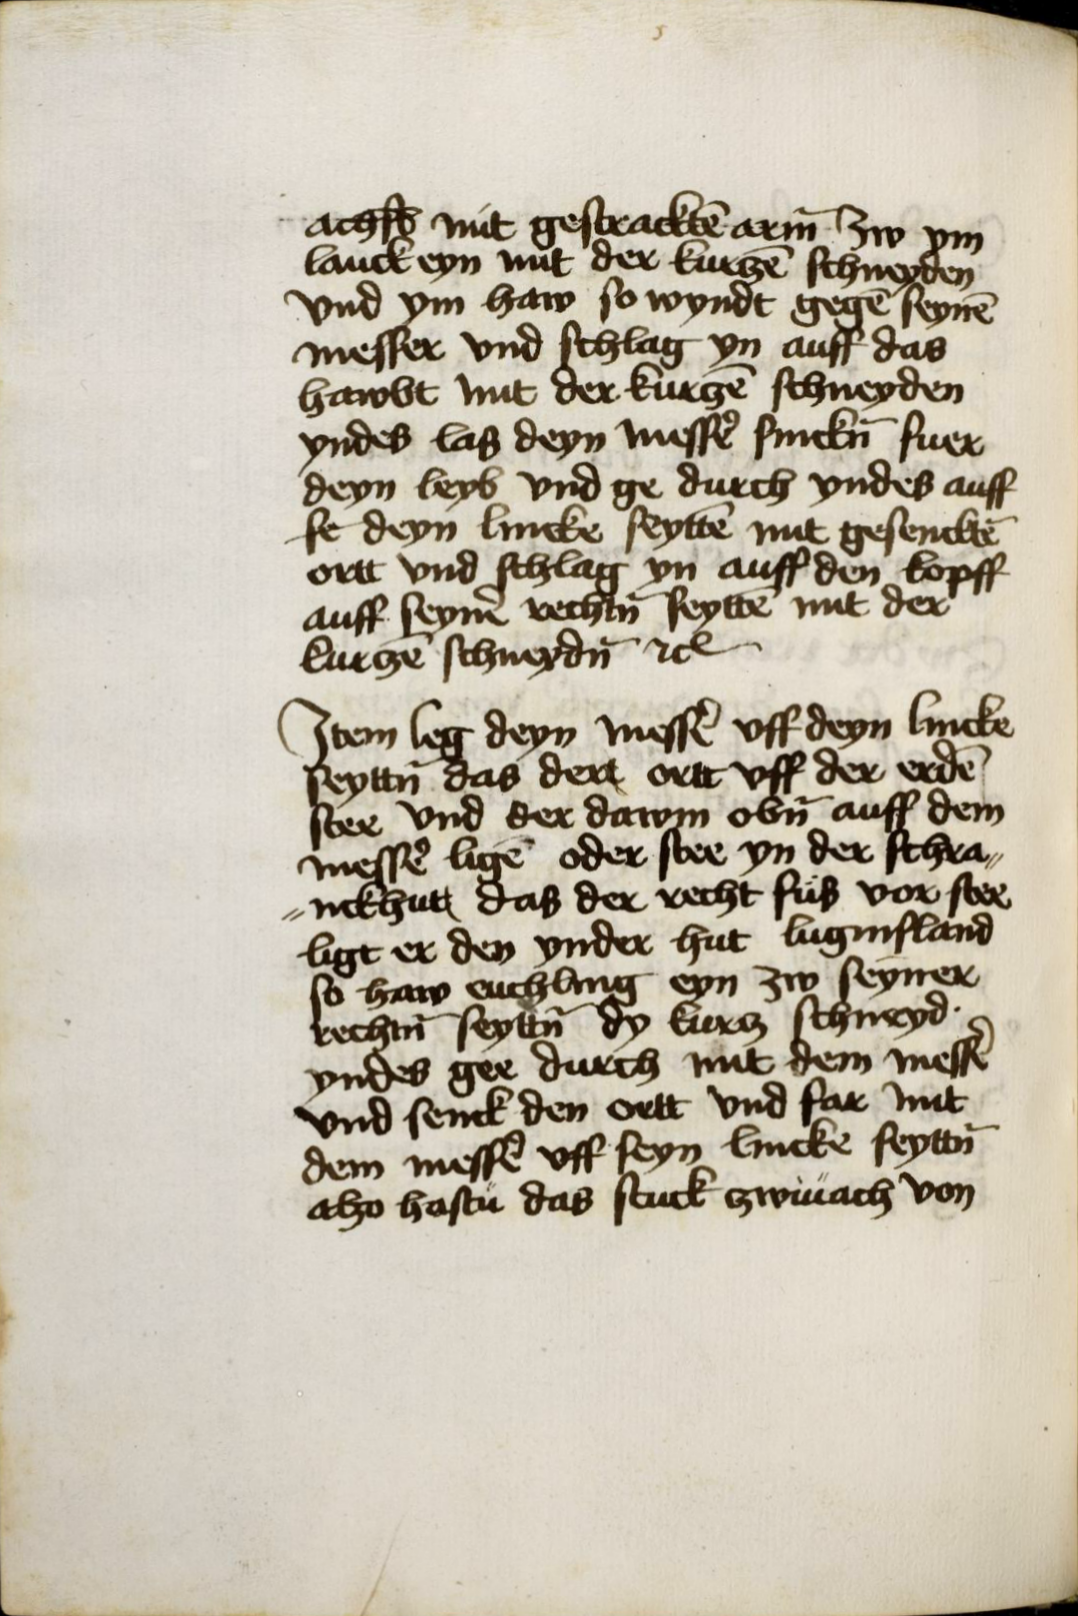 achslb mit gestracktē arm̄ zw ym
lauck eyn mit der kurczē schneyden
vnd ym haw so wyndt gegē seynē
messer vnd schlag yn auff das
hawbt mit der kurczē schneyden
yndes las deyn messer̉ sinckn̄ fuer
deyn leyb vnd ge durch yndes auff
se deyn lincke seyttē mit gesencktē
ortt vnd schlag yn auff den kopff
auff seyner̉ rechtn̄ seyttē mit der
kurczē schneydn̄ ꝛcꝭ
Item leg deyn messer̉ vff deyn lincke
seyttn̄ das der ortt vff der erdē
stee vnd der dawm obn̄ auff dem
messer̉ ligē oder stee yn der schra„
„nckhutt das der recht fuͦs vor stee
ligt er den ynder hut luginsland
so haw euchling eyn zw seyner
rechtn̄ seyttn̄ dy kurcz schneyd.
yndes gee durch mit dem messer̉
vnd senck den ortt vnd far mit
dem messer̉ vff seyn lincke seyttn̄
also hastü das stuck zwiüach von